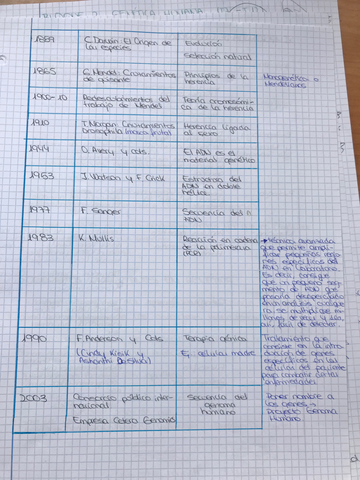 1859
C. Darwin: El Origen de
las especies
Evolución
Selección natural
1865
G. Mendel: Cruzamientos
de guisante
Principios de la
herencia
Monogenético o
Mendelianos
1900-10
Redescubrimientos del
trabajo de Mendel
Teoría cromosómi-
ca de la herencia
1910
T. Morgan: Cruzamientos
Drosophila (mosca fruta)
Herencia ligada
al sexo
1944
O. Avery y cols.
El ADN es el
material genético
1953
J. Watson y F. Crick
Estructura del
ADN en doble
hélice
1977
F. Sanger
Secuencia del
ADN
1983
K. Mullis
Reacción en cadena
de la polimerasa
(PCR)
Técnica avanzada
que permite ampli-
ficar pequeñas
específicas del
ADN en laboratorio.
Es decir, consigue
que un pequeño seg-
mento de ADN que
pasaría desapercibido
en un análisis cualquie-
ra se multiplique mi-
llones de veces y sea
fácil de detectar.
1990
F. Anderson y Cols.
(Cindy Kisik y
Ashanthi DeSilva)
Terapia génica
células madre
Tratamiento que
consiste en la intro-
ducción de genes
específicos en las
células del paciente
para combatir ciertas
enfermedades
2003
Consorcio público inter-
nacional
Empresa Celera Genomics
Secuencia del
genoma
humano
Poner nombre a
los genes
Proyecto Genoma
Humano.